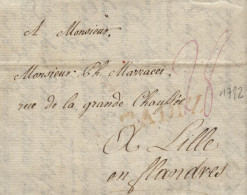 A Monsieur,
Monsieur Ch. Marracci
rue de la grande Chaussée
A Lille
en flandres
1782